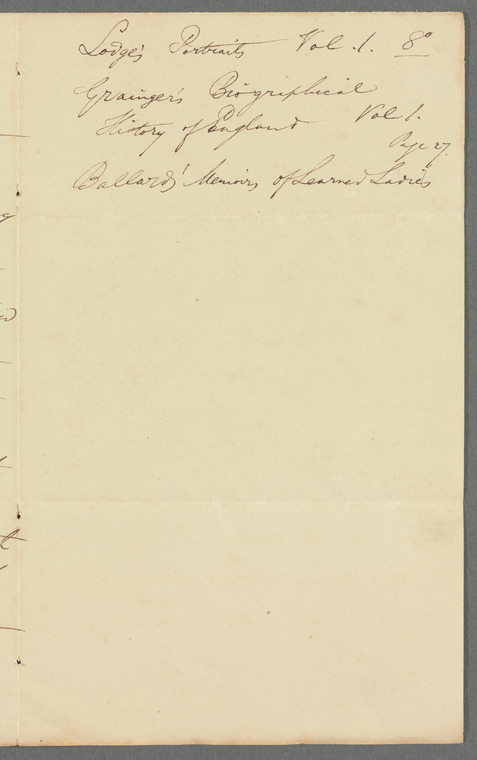 Lodge's Portraits Vol. 1. 8º
Grainger's Biographical
History of England Vol 1.
Page 27.
Ballard's Memoirs of Learned Ladies